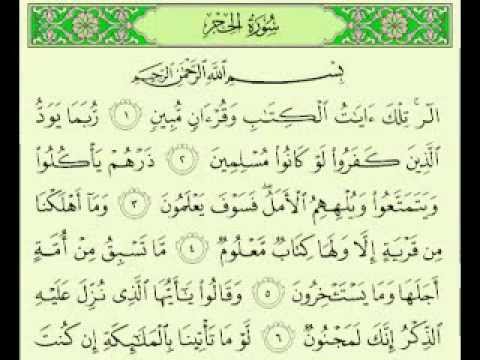 سُورَةُ الحِجْرِ
بِسْمِ اللَّهِ الرَّحْمَٰنِ الرَّحِيمِ
الٓر ۚ تِلْكَ ءَايَٰتُ ٱلْكِتَٰبِ وَقُرْءَانٍ مُّبِينٍ ١ رُّبَمَا يَوَدُّ
ٱلَّذِينَ كَفَرُوا۟ لَوْ كَانُوا۟ مُسْلِمِينَ ٢ ذَرْهُمْ يَأْكُلُوا۟
وَيَتَمَتَّعُوا۟ وَيُلْهِهِمُ ٱلْأَمَلُ ۖ فَسَوْفَ يَعْلَمُونَ ٣ وَمَآ أَهْلَكْنَا
مِن قَرْيَةٍ إِلَّا وَلَهَا كِتَابٌ مَّعْلُومٌ ٤ مَّا تَسْبِقُ مِنْ أُمَّةٍ
أَجَلَهَا وَمَا يَسْتَـْٔخِرُونَ ٥ وَقَالُوا۟ يَٰٓأَيُّهَا ٱلَّذِى نُزِّلَ عَلَيْهِ
ٱلذِّكْرُ إِنَّكَ لَمَجْنُونٌ ٦ لَّوْ مَا تَأْتِينَا بِٱلْمَلَٰٓئِكَةِ إِن كُنتَ